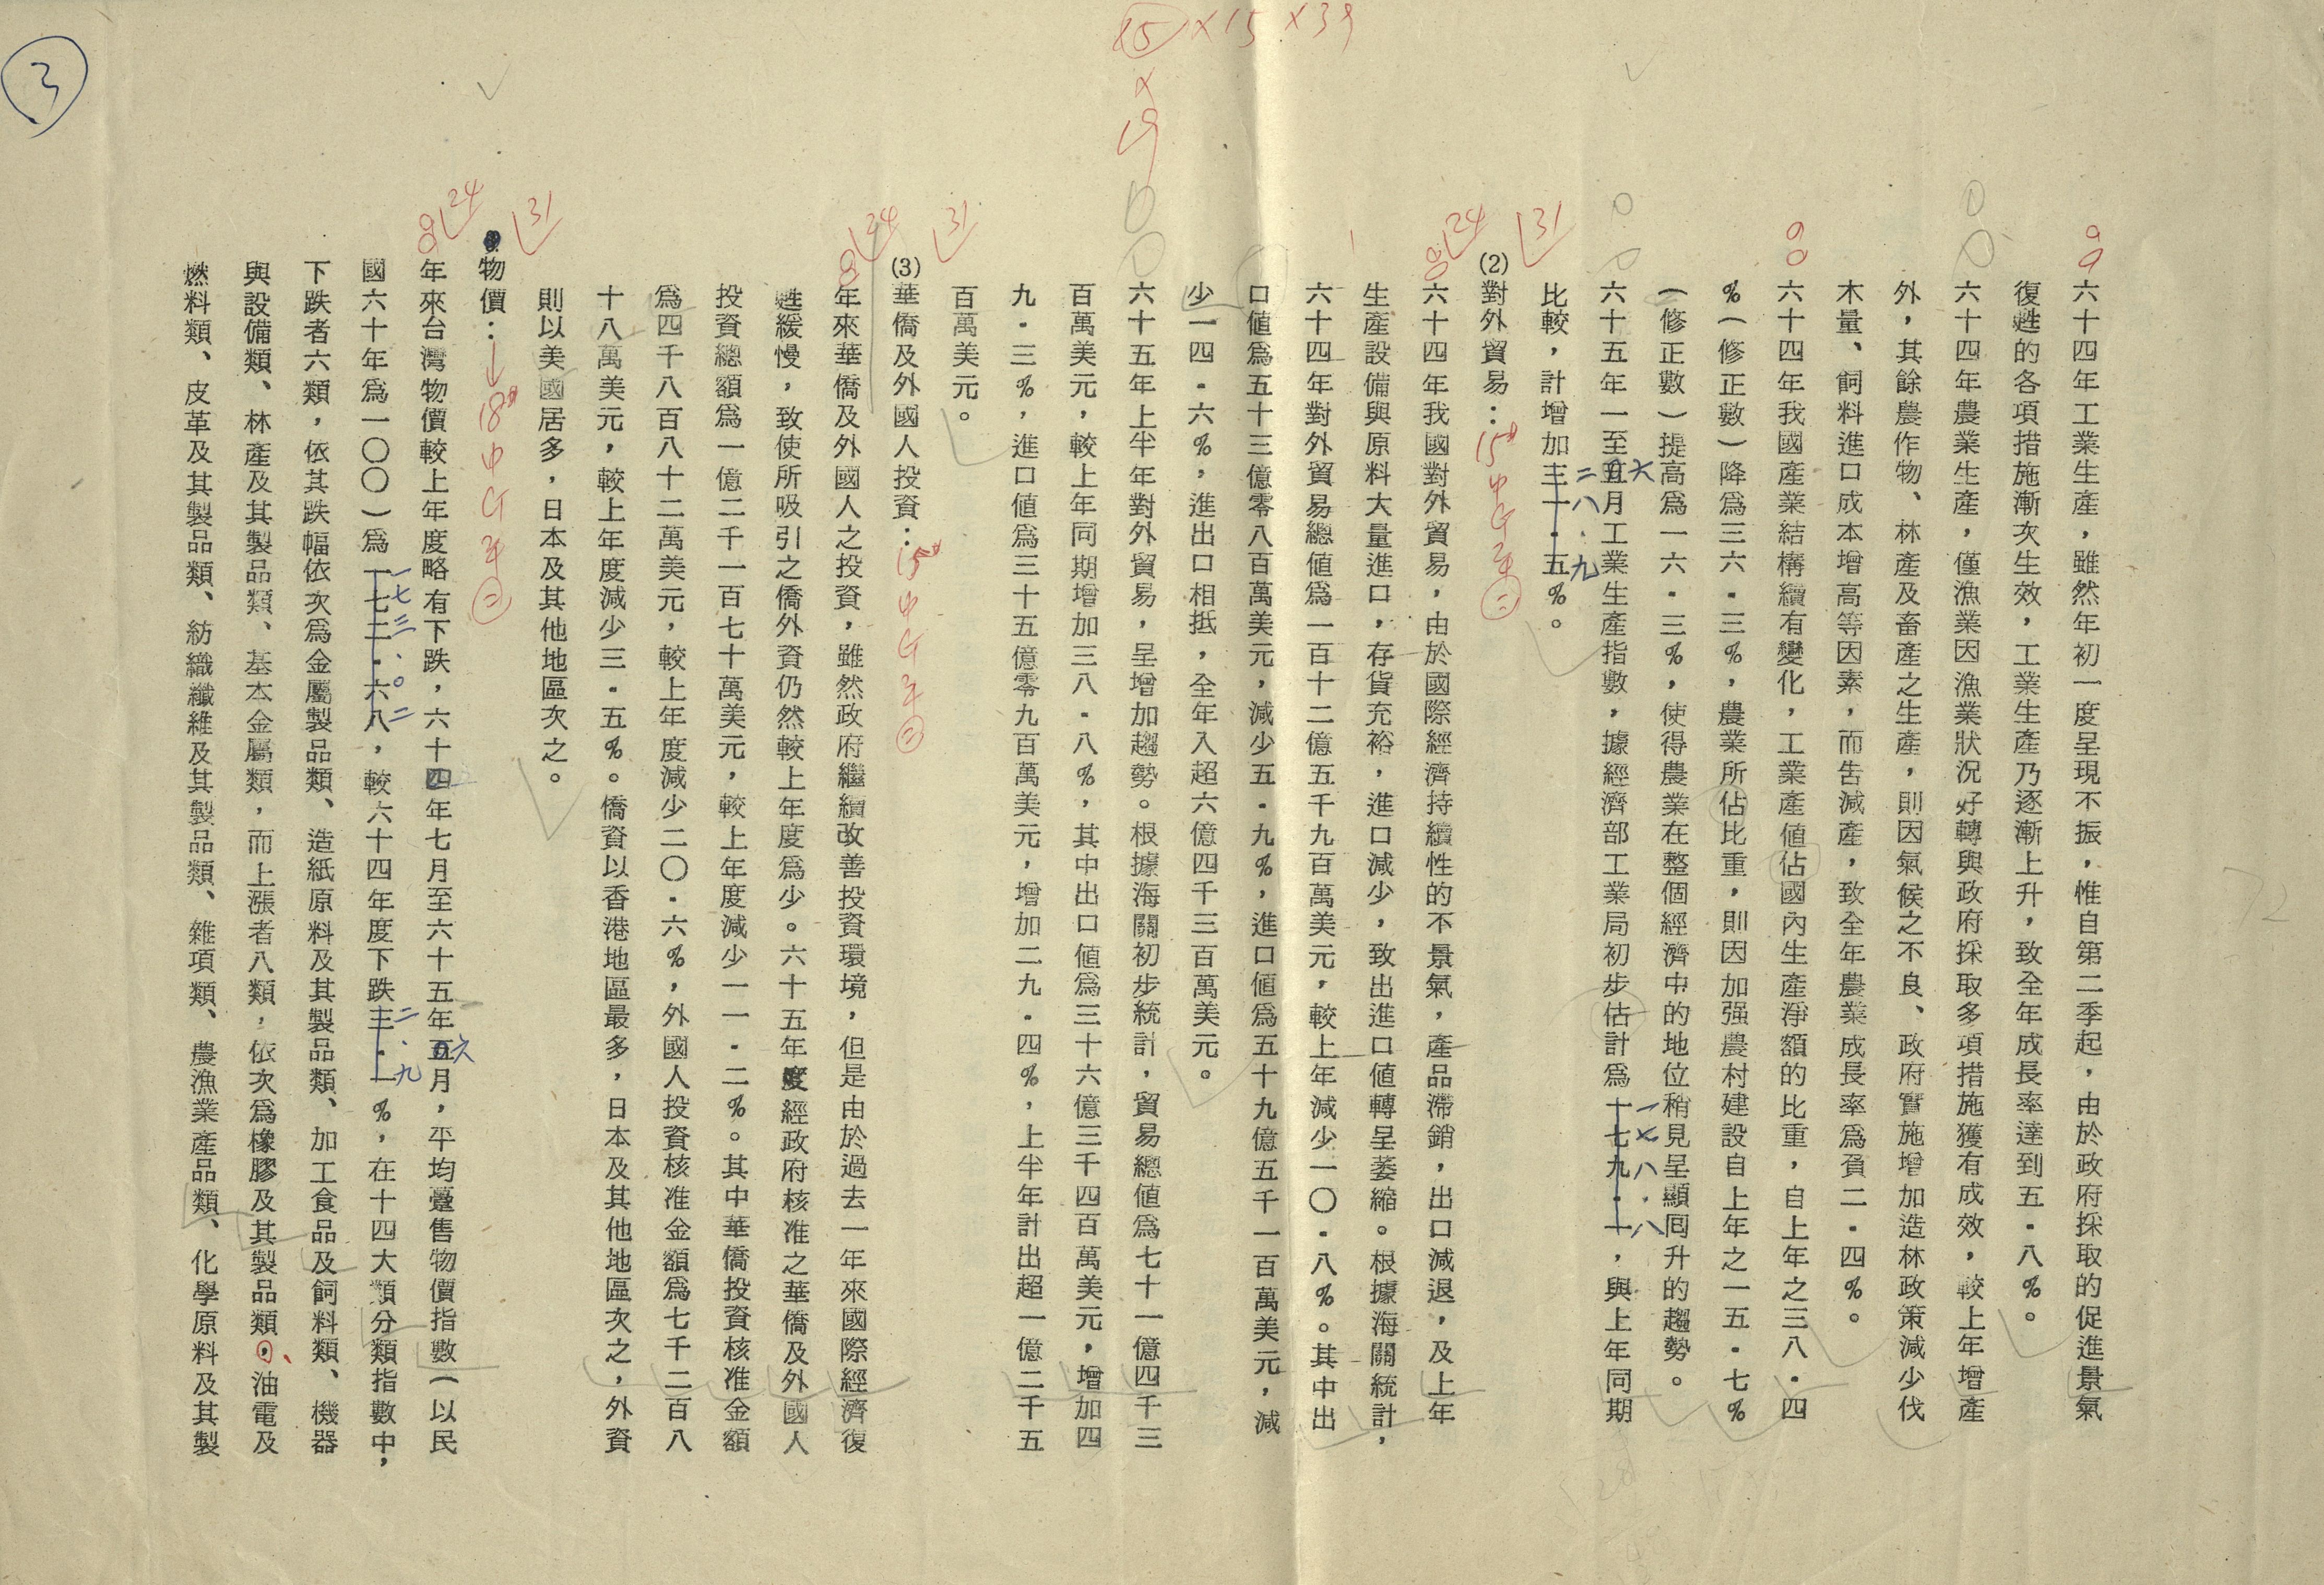 六十四年工業生產，雖然年初一度呈現不振，惟自第二季起，由於政府採取的促進景氣
復甦的各項措施漸次生效，工業生產乃逐漸上升，致全年成長率達到五．八％。
六十四年農業生產，僅漁業因漁業狀況好轉與政府採取多項措施獲有成效，較上年增產
外，其餘農作物、林產及畜產之生產，則因氣候之不良、政府實施增加造林政策減少伐
木量、飼料進口成本增高等因素，而告減產，致全年農業成長率為負二．四％。
六十四年我國產業結構續有變化，工業產值佔國內生產淨額的比重，自上年之三八．四
％（修正數）降為三六．三％，農業所佔比重，則因加强農村建設自上年之一五．七％
（修正數）提高為一六．三％，使得農業在整個經濟中的地位稍見呈顯囘升的趨勢。
六十五年一至五六月工業生產指數，據經濟部工業局初步估計為十七九．十一七八．八，與上年同期
比較，計增加三十．五二八．九％。
(2)對外貿易：
六十四年我國對外貿易，由於國際經濟持續性的不景氣，產品滯銷，出口減退，及上年
生產設備與原料大量進口，存貨充裕，進口減少，致出進口值轉呈萎縮。根據海關統計，
六十四年對外貿易總值為一百十二億五千九百萬美元，較上年減少一〇．八％。其中出
口值為五十三億零八百萬美元，減少五．九％，進口值為五十九億五千一百萬美元，減
少一四．六％，進出口相抵，全年入超六億四千三百萬美元。
六十五年上半年對外貿易，呈增加趨勢。根據海關初步統計，貿易總值為七十一億四千三
百萬美元，較上年同期增加三八．八％，其中出口值為三十六億三千四百萬美元，增加四
九．三％，進口值為三十五億零九百萬美元，增加二九．四％，上半年計出超一億二千五
百萬美元。
(3)華僑及外國人投資：
年來華僑及外國人之投資，雖然政府繼續改善投資環境，但是由於過去一年來國際經濟復
甦緩慢，致使所吸引之僑外資仍然較上年度為少。六十五年度經政府核准之華僑及外國人
投資總額為一億二千一百七十萬美元，較上年度減少一一．二％。其中華僑投資核准金額
為四千八百八十二萬美元，較上年度減少二〇．六％，外國人投資核准金額為七千二百八
十八萬美元，較上年度減少三．五％。僑資以香港地區最多，日本及其他地區次之，外資
則以美國居多，日本及其他地區次之。
物價：
年來台灣物價較上年度略有下跌，六十四年七月至六十五年五六月，平均躉售物價指數（以民
國六十年為一〇〇）為一七二．六八一七三．〇二，較六十四年度下跌三．一二．九％，在十四大類分類指數中，
下跌者六類，依其跌幅依次為金屬製品類、造紙原料及其製品類、加工食品及飼料類、機器
與設備類、林產及其製品類、基本金屬類，而上漲者八類，依次為橡膠及其製品類，、油電及
燃料類、皮革及其製品類、紡織纖維及其製品類、雜項類、農漁業產品類、化學原料及其製
3
15×15×39
72